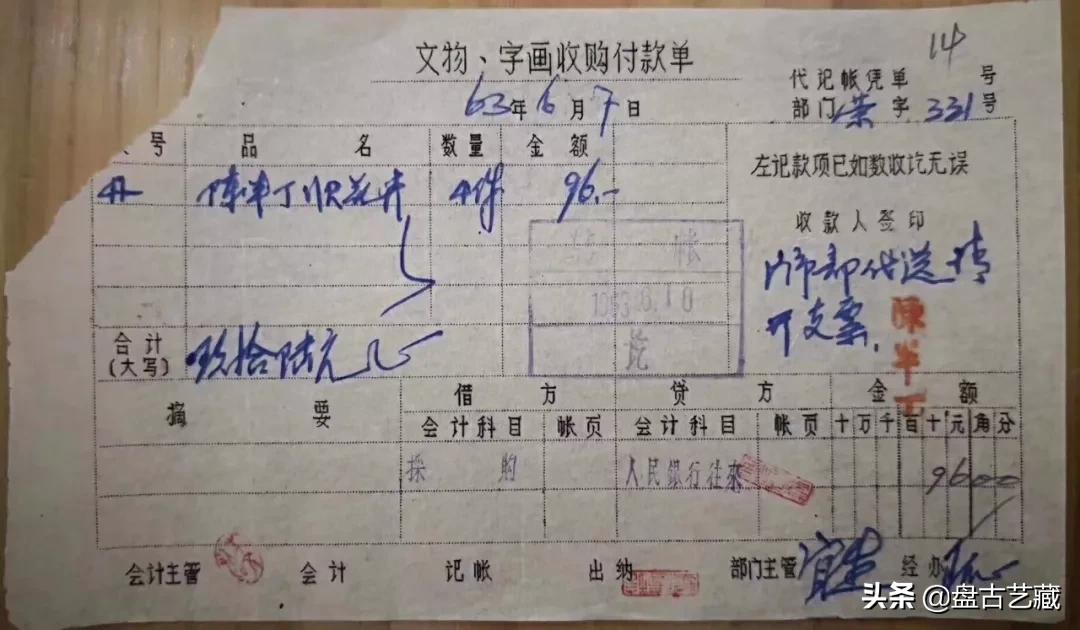 文物、字画收购付款单
14
代记帐凭单 号
63年6月7日
部门 荣 字 331号
号 品名 数量 金额
左记款项已如数收讫无误
陈半丁 花卉 4件 96.-
收款人签印
结帐
1963.6.10
讫
代送请
开支票.
陳半丁
合计
(大写)
玖拾陆元
摘要 借方 贷方 金额
会计科目 帐页 会计科目 帐页 十万千百十元角分
採购 人民银行往来 9600
会计主管 会计 记帐 出纳 部门主管 经办
头条 @盘古艺藏